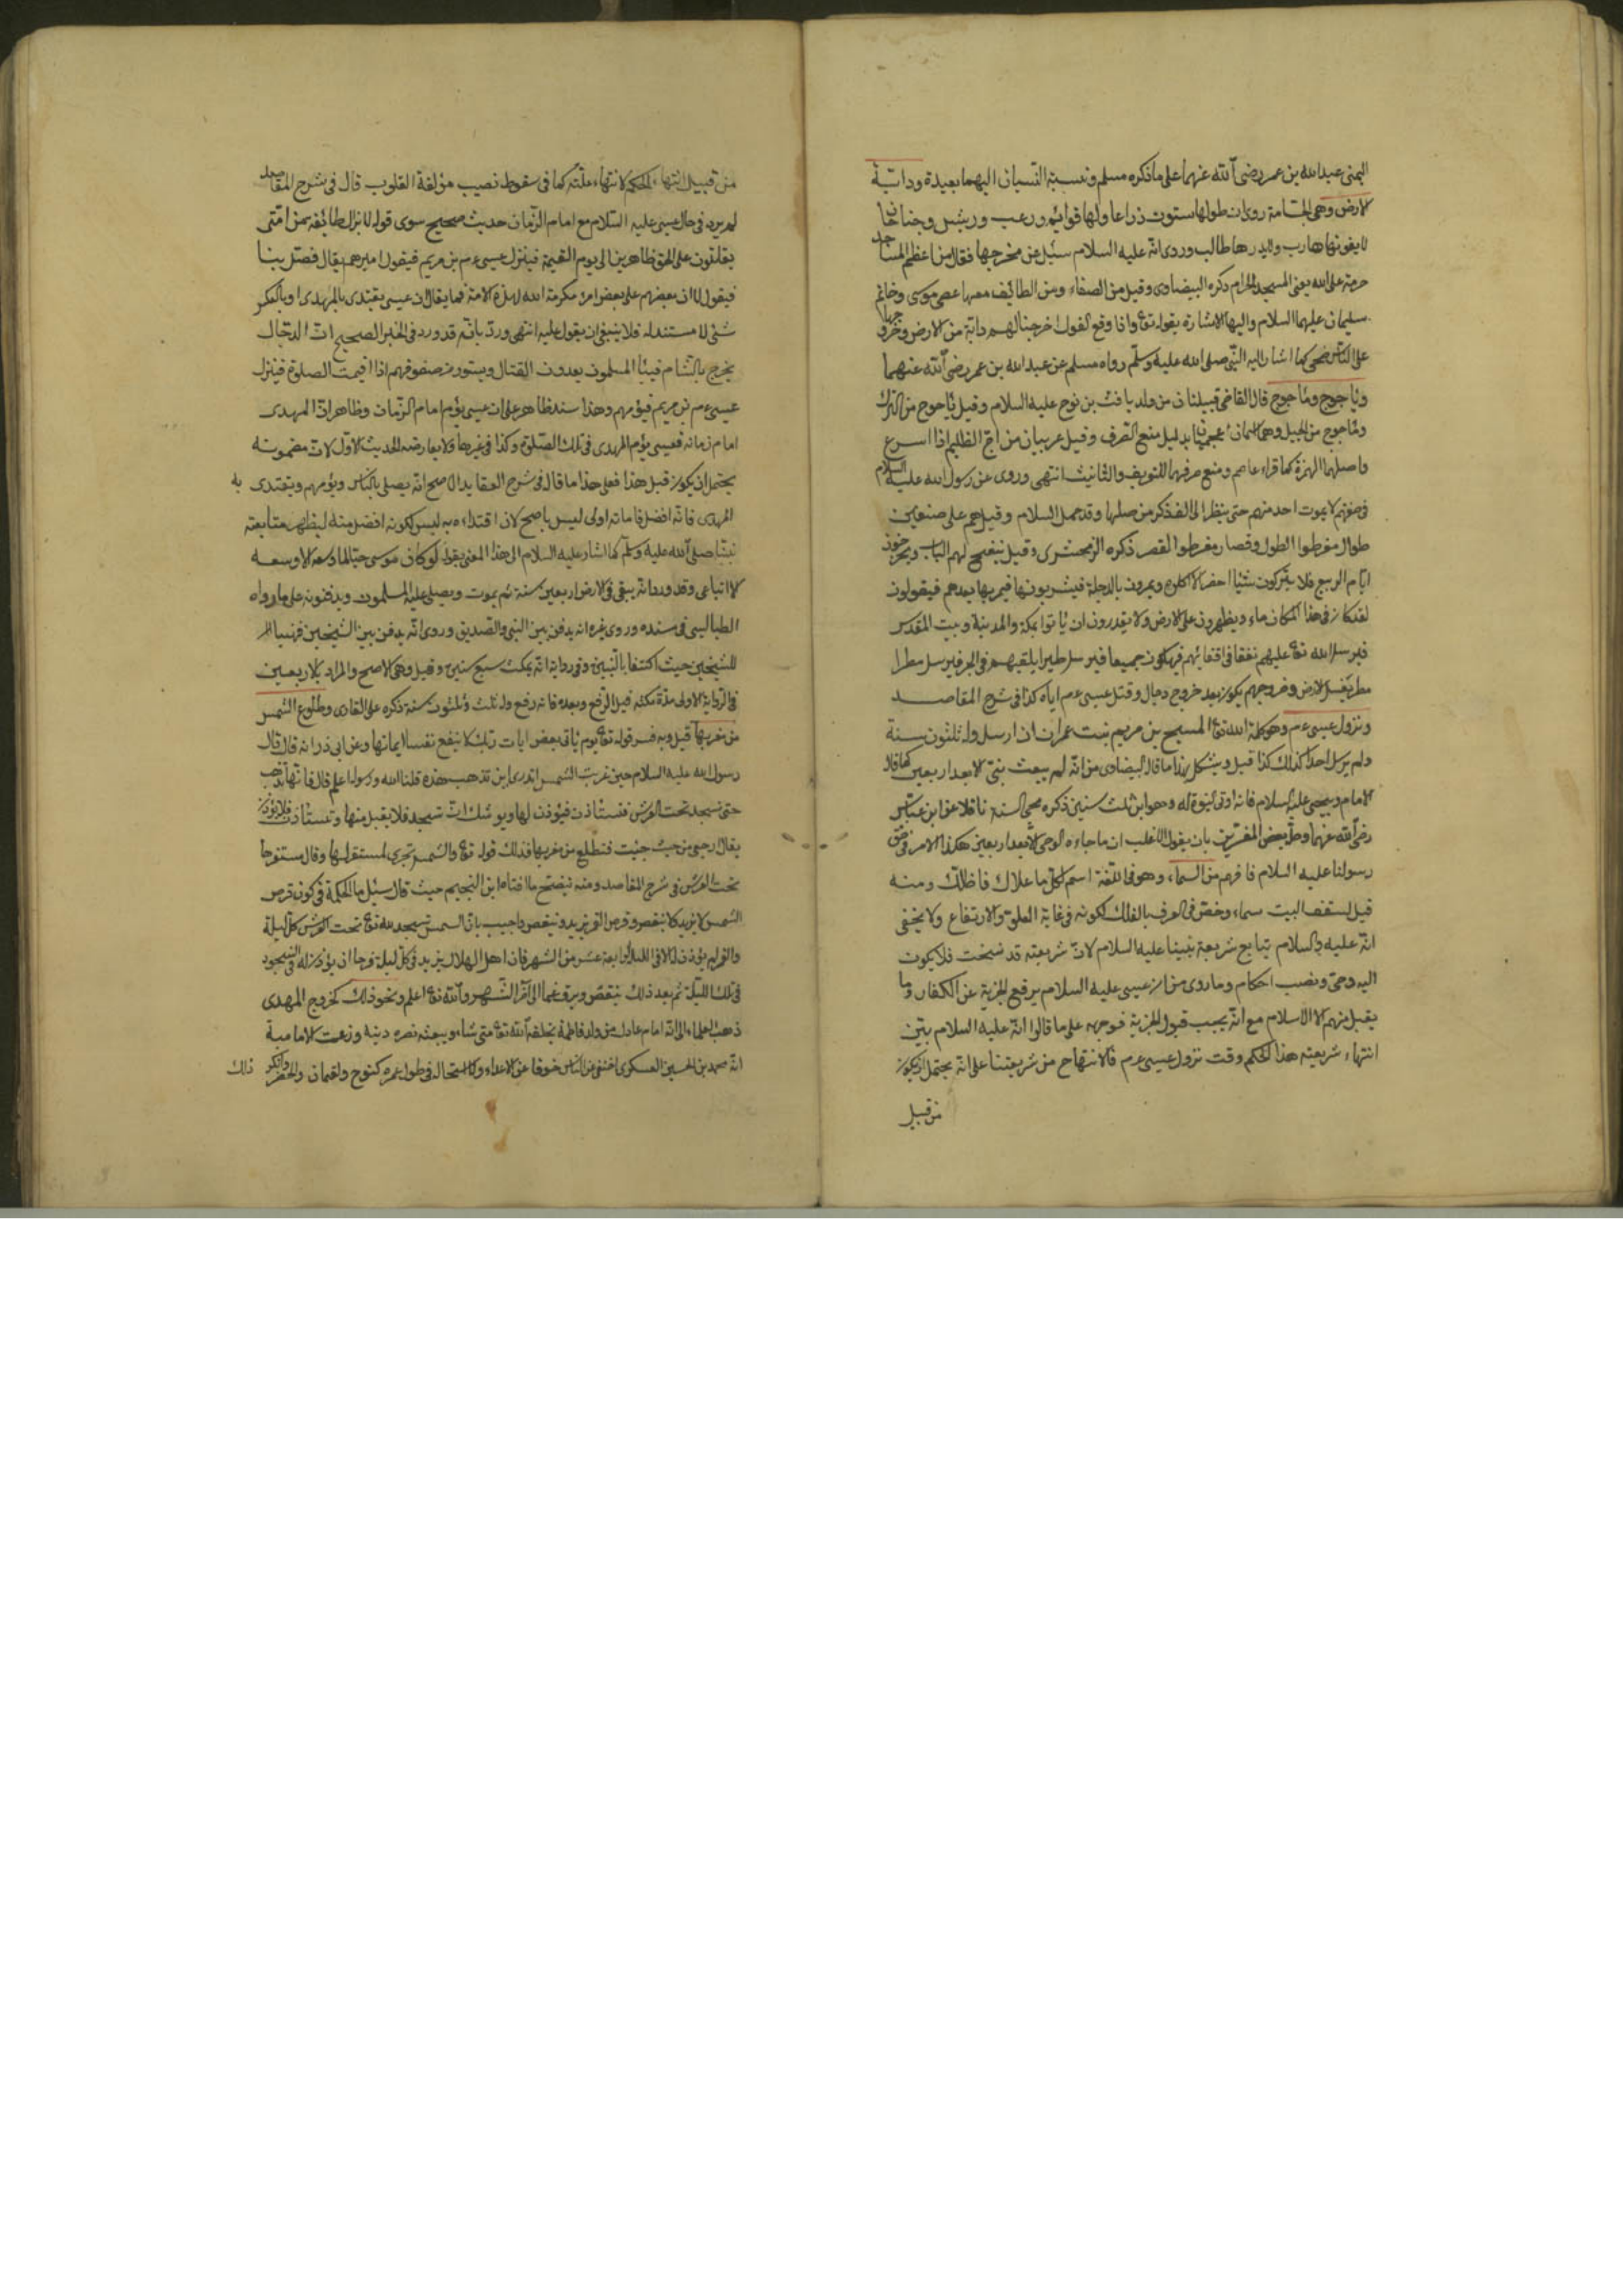 اليمنى عبدالله بن عمر رضى الله عنهما على ما ذكره مسلم ونسبة النسيان اليهما بعيدة ودابة
الارض وهى الجساسة روى ان طولها ستون ذراعا ولها قوائم وزغب وريش وجناحان
لا يفوتها هارب ولا يدركها طالب وروى انه عليه السلام سئل من مخرجها فقال من اعظم المساجد
حرمة على الله يعنى المسجد الحرام ذكره البيضاوى وقيل من الصفاء ومن الطائف معها عصى موسى وخاتم
سليمان عليهما السلام واليها الاشارة بقوله تع واذا وقع القول اخرجنا لهم دابة من الارض وخروجها
على الناس ضحى كما اشار اليه النبى صلى الله عليه وسلم رواه مسلم عن عبدالله بن عمر رضى الله عنهما
وياجوج وماجوج قال القاضى قبيلتان من ولد يافث بن نوح عليه السلام وقيل ياجوج من الترك
وماجوج من الجيل وهما اسمان اعجميان بدليل منع الصرف وقيل عربيان من اج الظليم اذا اسرع
واصلهما الهمزة كما قراء عاصم ومنع صرفهما للتعريف والتانيث انتهى وروى عن رسول الله عليه السلام
فى صفتهم لا يموت احد منهم حتى ينظر الى الف ذكر من صلبها وقد حمل السلام وقيل هم على صنفين
طوال مفرطوا الطول وقصار مفرطوا القصر ذكره الزمخشرى وقيل ينفتح لهم الباب ويخرجون
ايام الربيع فلا يتركون شيئا اخضر الا اكلوه ويمرون بالدجلة فيشربونها فيمر بها بعدهم فيقولون
لقد كان فى هذا المكان ماء ويظهرون على الارض ولا يقدرون ان ياتوا بمكة والمدينة وبيت المقدس
فيرسل الله تع عليهم نغفا فى اقفائهم فيهلكون جميعا فيرسل طيرا يلقيهم فى البحر فيرسل مطرا
مطر يغسل الارض وخروجهم يكون بعد خروج دجال وقتل عيسى عم اياه كذا فى شرح المقاصد
ونزول عيسى عم وهو كلمة الله تع المسيح بن مريم بنت عمران ارسل وله ثلثون سنة
ولم يرسل احدا كذلك كذا قيل ويشكل بهذا ما قال البيضاوى من انه لم يبعث نبى الا بعد اربعين كما قال
الامام وبيحيى عليه السلام فانه اوتى النبوة له وهو ابن ثلث سنين ذكره محى السنة ناقلا عن ابن عباس
رضى الله عنهما وحل بعض المفسرين بان يقول الاغلب ان ما جاءه الوحى الا بعد اربعين هكذا الامر فى حق
رسولنا عليه السلام فافهم من السماء وهو فى اللغة اسم لكل ما علاك فاظلك ومنه
قيل لسقف البيت سماء وخص فى العرف بالفلك لكونه فى غاية العلو والارتفاع ولا يخفى
انه عليه السلام يتابع شريعة نبينا عليه السلام لان شريعته قد نسخت فلا يكون
اليه وحى ونصب احكام وما روى من ان عيسى عليه السلام يرفع الجزية عن الكفار وما
يقبل منهم الا الاسلام مع انه يجب قبول الجزية فوجهه على ما قالوا انه عليه السلام بين
انتهاء شريعته هذا الحكم وقت نزول عيسى عم فالانتهاء من شريعتنا على انه يحتمل ان يكون
من قبيل
من قبيل انتهاء الحكم لانتهاء علته كما فى سقوط نصيب مؤلفة القلوب قال فى شرح المقاصد
لم يرد فى حال عيسى عليه السلام مع امام الزمان حديث صحيح سوى قوله لا تزال طائفة من امتى
يقاتلون على الحق ظاهرين الى يوم القيمة فينزل عيسى عم بن مريم فيقول اميرهم تعال فصل بنا
فيقول لا ان بعضهم على بعض امراء تكرمة الله لهذه الامة فما يقال ان عيسى يقتدى بالمهدى او بالعكس
شئ لا مستند له فلا ينبغى ان يعول عليه انتهى ورد بانه قد ورد فى الخبر الصحيح ان الدجال
يخرج بالشام فبينا المسلمون يعدون القتال ويسوون صفوفهم اذا اقيمت الصلوة فينزل
عيسى عم بن مريم فيؤمهم وهذا سند ظاهر على ان عيسى يؤم امام الزمان وظاهر ان المهدى
امام زمانه فعيسى يؤم المهدى فى تلك الصلوة وكذا فى غيرها ولا يعارضه الحديث الاول لان مضمونه
يحتمل ان يكون قبل هذا فعلى هذا ما قال فى شرح العقايد الاصح انه يصلى بالناس ويؤمهم ويقتدى به
المهدى فانه افضل فامامته اولى ليس باصح لان اقتداءه به ليس لكونه افضل منه ليظهر متابعته
نبينا صلى الله عليه وسلم كما اشار عليه السلام الى هذا المعنى بقوله لو كان موسى حيا لما وسعه الا وسعه
الا اتباعى وقد ورد انه يبقى فى الارض اربعين سنة ثم يموت ويصلى عليه المسلمون ويدفنونه على ما رواه
الطيالسى فى مسنده وروى غيره انه يدفن بين النبى والصديق وروى انه يدفن بين الشيخين فهنيئا
للشيخين حيث اكتنفا بالنبيين وفى رواية انه يمكث سبع سنين وقيل وهى الاصح والمراد بالاربعين
فى الرواية الاولى مدة مكثه قبل الرفع وبعده فانه رفع وله ثلث وثلثون سنة ذكره على القارى وطلوع الشمس
من مغربها قيل وبه فسر قوله تع يوم ياتى بعض ايات ربك لا ينفع نفسا ايمانها وعن ابى ذر انه قال قال
رسول الله عليه السلام حين غربت الشمس اتدرى اين تذهب هذه قلنا الله ورسوله اعلم قال فانها تذهب
حتى تسجد تحت العرش فتستأذن فيؤذن لها ويوشك ان تسجد فلا يقبل منها وتستأذن فلا يؤذن
يقال ارجعى من حيث جئت فتطلع من مغربها فذلك قوله تع والشمس تجرى لمستقر لها وقال مستقرها
تحت العرش فى شرح المقاصد ومنه يتضح ما افتاه ابن النجيم حيث قال سئل ما الحكمة فى كون قرص
الشمس لا يزيد ولا ينقص وقرص القمر يزيد وينقص واجيب بان الشمس تسجد لله تع تحت العرش كل ليلة
والقمر لم يؤذن له الا فى الليلة الرابعة عشر من الشهر فان اهل الهلال يزيد فى كل ليلة فرحا ان يؤذن له فى السجود
فى تلك الليلة ثم بعد ذلك ينقص ويرق غما الى اخر الشهر والله تع اعلم ونحو ذلك كخروج المهدى
ذهب العلماء الى انه امام عادل من ولد فاطمة يخلقه الله تع متى شاء ويبعثه نصره دينه وزعمت الامامية
انه محمد بن الحسين العسكرى اختفى من الناس خوفا عن الاعداء ولا استحالة فى طول عمره كنوح ولقمان والخضر وانكر ذلك